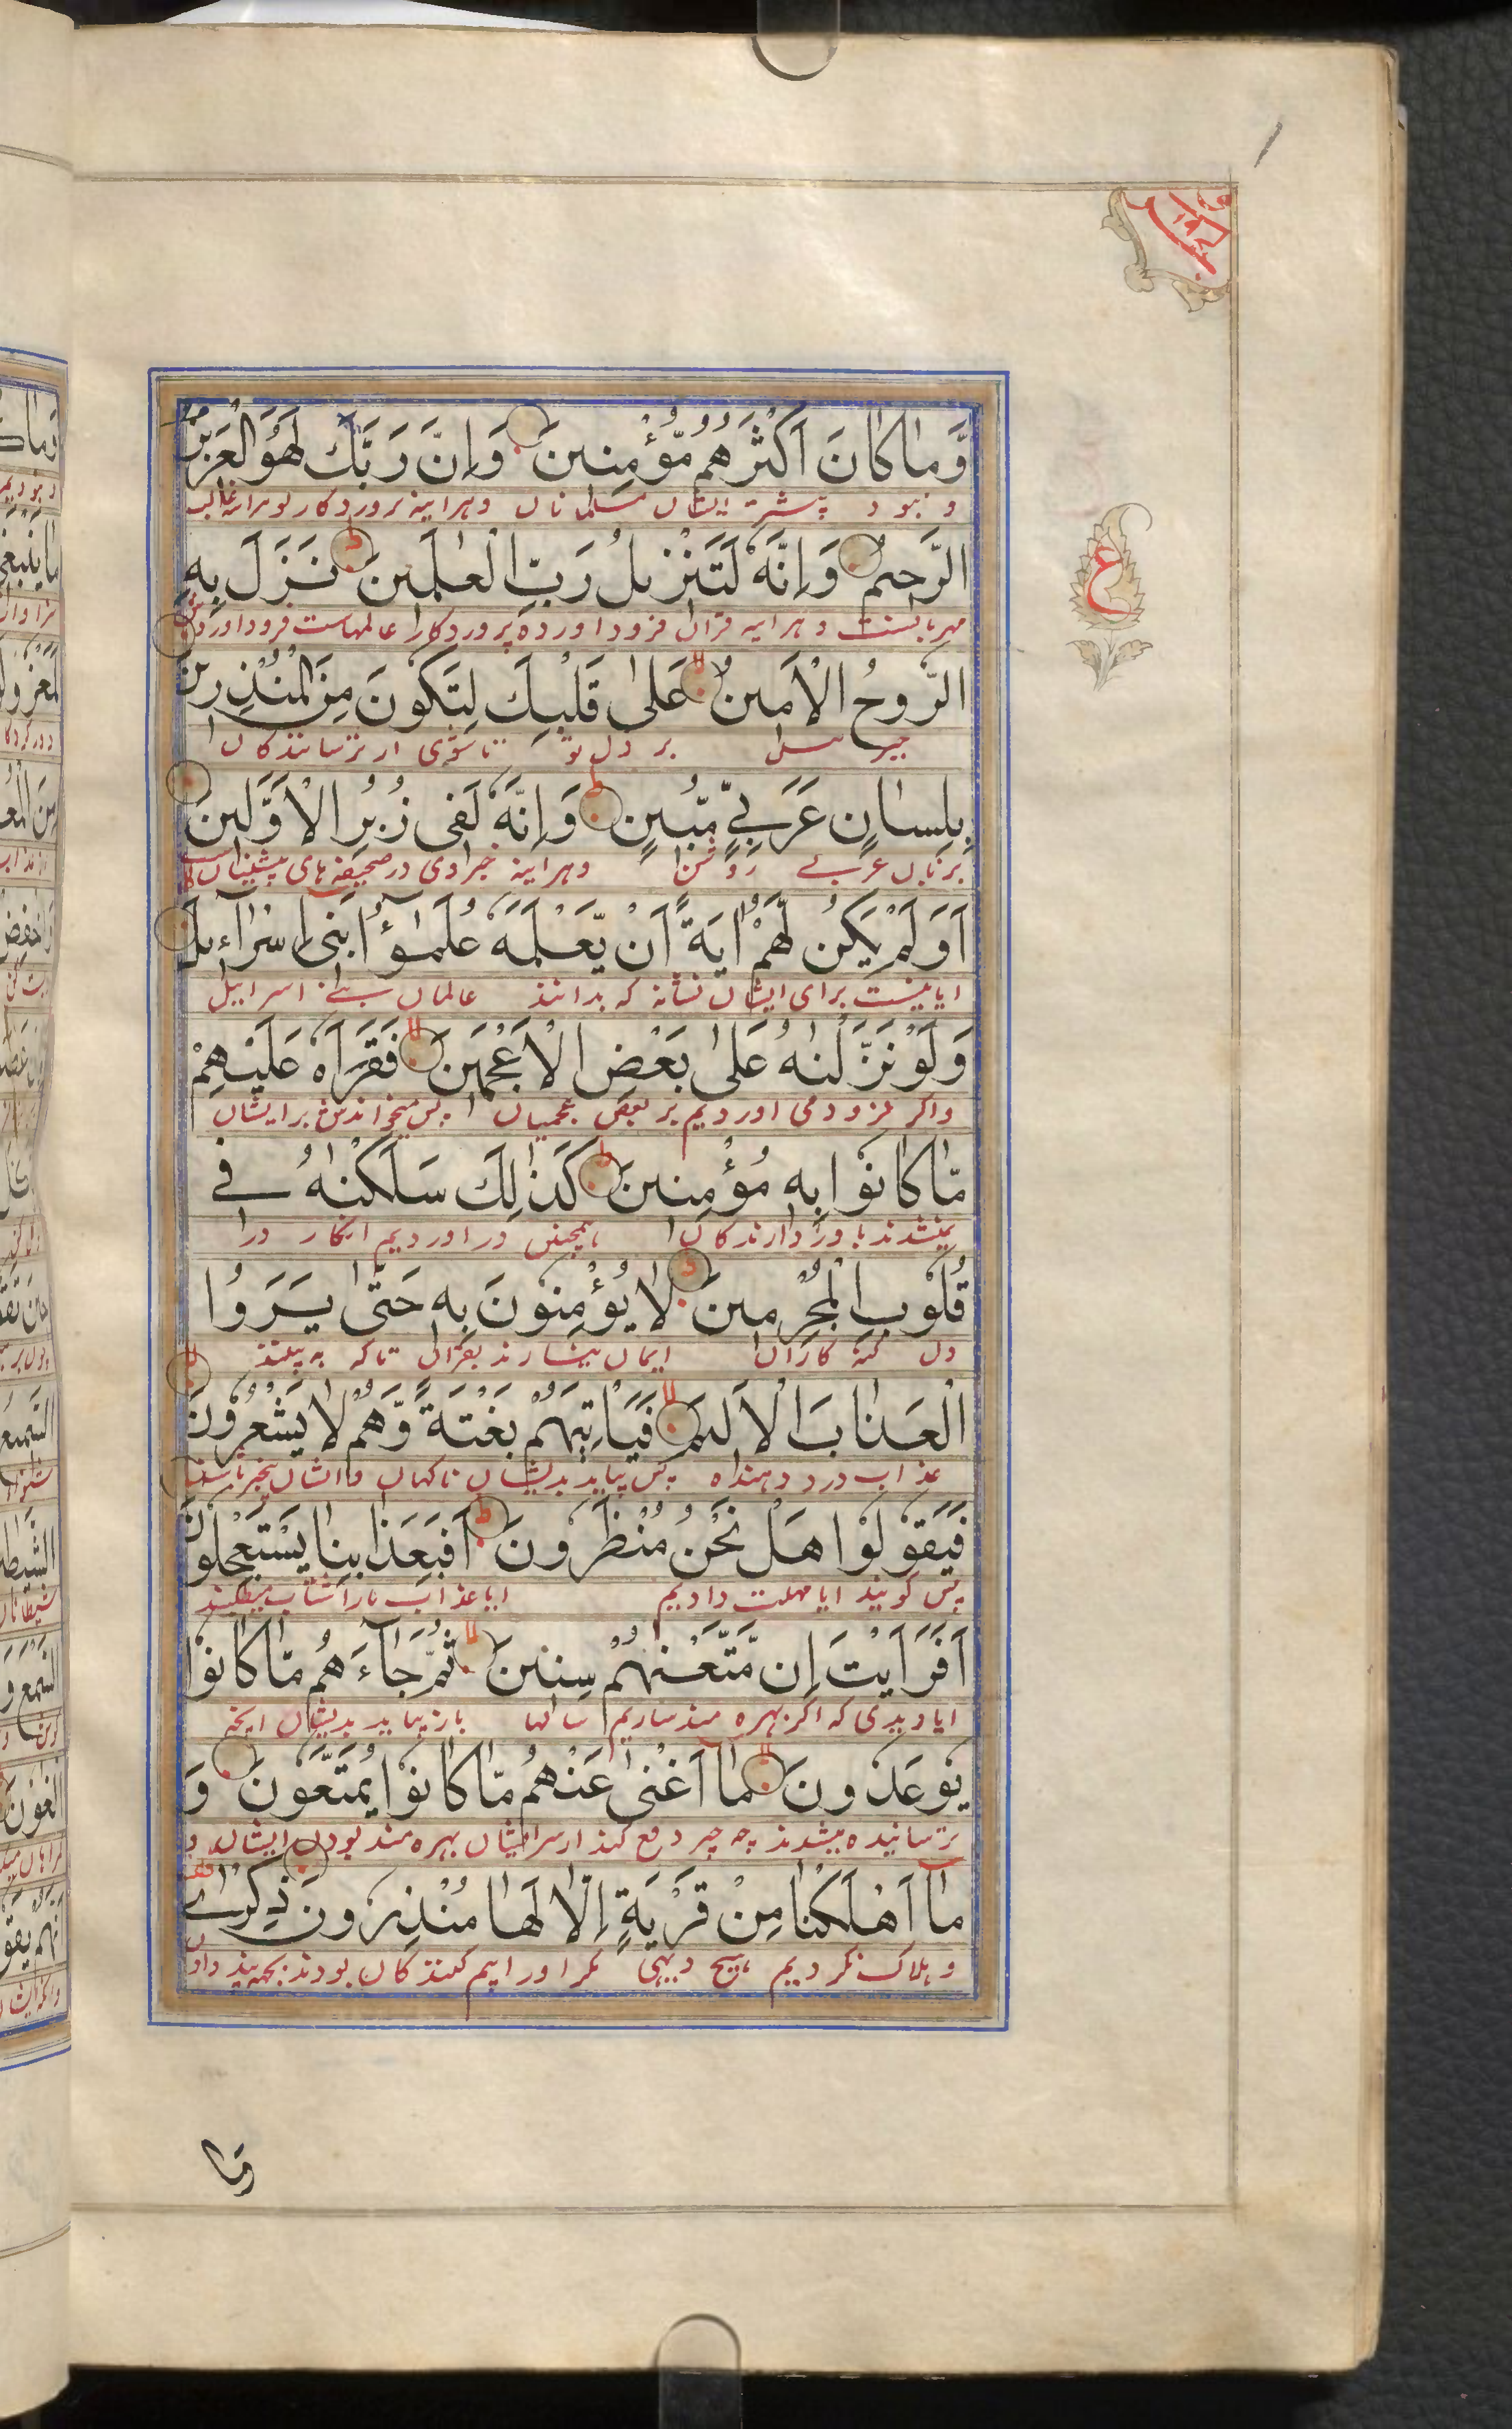 وَّمَا كَانَ اَكْثَرُهُمْ مُّؤْمِنِينَ وَاِنَّ رَبَّكَ لَهُوَ الْعَزِيزُ
و نبود بیشتر ایشان مسلمانان و هراینه پروردکار تو هراینه غالب
الرَّحِيمُ وَاِنَّهٗ لَتَنْزِيلُ رَبِّ الْعٰلَمِينَ نَزَلَ بِهِ
مهربانست و هراینه قران فرود اورده پروردکار عالمهاست فرود اورد
الرُّوحُ الْاَمِينُ عَلٰى قَلْبِكَ لِتَكُونَ مِنَ الْمُنْذِرِينَ
جبرییل بر دل تو تا شوی از ترسانندکان
بِلِسَانٍ عَرَبِيٍّ مُّبِينٍ وَاِنَّهٗ لَفِى زُبُرِ الْاَوَّلِينَ
بزبان عربی روشن و هراینه خبر اوی در صحیفه های پیشینیان
اَوَلَمْ يَكُنْ لَّهُمْ اٰيَةً اَنْ يَّعْلَمَهٗ عُلَمٰٓؤُا بَنِىٓ اِسْرَآءِيلَ
ایا نیست برای ایشان نشانه که بدانند عالمان بنی اسراییل
وَلَوْ نَزَّلْنٰهُ عَلٰى بَعْضِ الْاَعْجَمِينَ فَقَرَاَهٗ عَلَيْهِمْ
و اکر فرود می اوردیم بر بعض عجمیان پس میخواندش بر ایشان
مَّا كَانُوْا بِهٖ مُؤْمِنِينَ كَذٰلِكَ سَلَكْنٰهُ فِے
نمیشدند باور دارندکان همچنین در اوردیم انکار در
قُلُوبِ الْمُجْرِمِينَ لَا يُؤْمِنُونَ بِهٖ حَتّٰى يَرَوُا
دل کنه کاران ایمان نمیارند بقران تا که به بینند
الْعَذَابَ الْاَلِيمَ فَيَاْتِيَهُمْ بَغْتَةً وَّهُمْ لَا يَشْعُرُونَ
عذاب درد دهنده پس بیاید بدیشان ناکهان و ایشان بیخبر باشند
فَيَقُوْلُوْا هَلْ نَحْنُ مُنْظَرُونَ اَفَبِعَذَابِنَا يَسْتَعْجِلُونَ
پس کویند ایا مهلت دادیم ایا عذاب مارا شتاب میطلبند
اَفَرَاَيْتَ اِنْ مَّتَّعْنٰهُمْ سِنِينَ ثُمَّ جَآءَهُمْ مَّا كَانُوْا
ایا دیدی که اکر بهره مند سازیم سالها باز بیاید بدیشان انچه
يُوعَدُونَ مَآ اَغْنٰى عَنْهُمْ مَّا كَانُوْا يُمَتَّعُونَ وَ
ترسانیده میشدند چه چیز دفع کند از سر ایشان بهره مند بودن ایشان و
مَآ اَهْلَكْنَا مِنْ قَرْيَةٍ اِلَّا لَهَا مُنْذِرُونَ ذِكْرٰے
و هلاک نکردیم هیچ دیهی مکر اورا بیم کنندکان بودند بجهة پند دادن
ع
وما